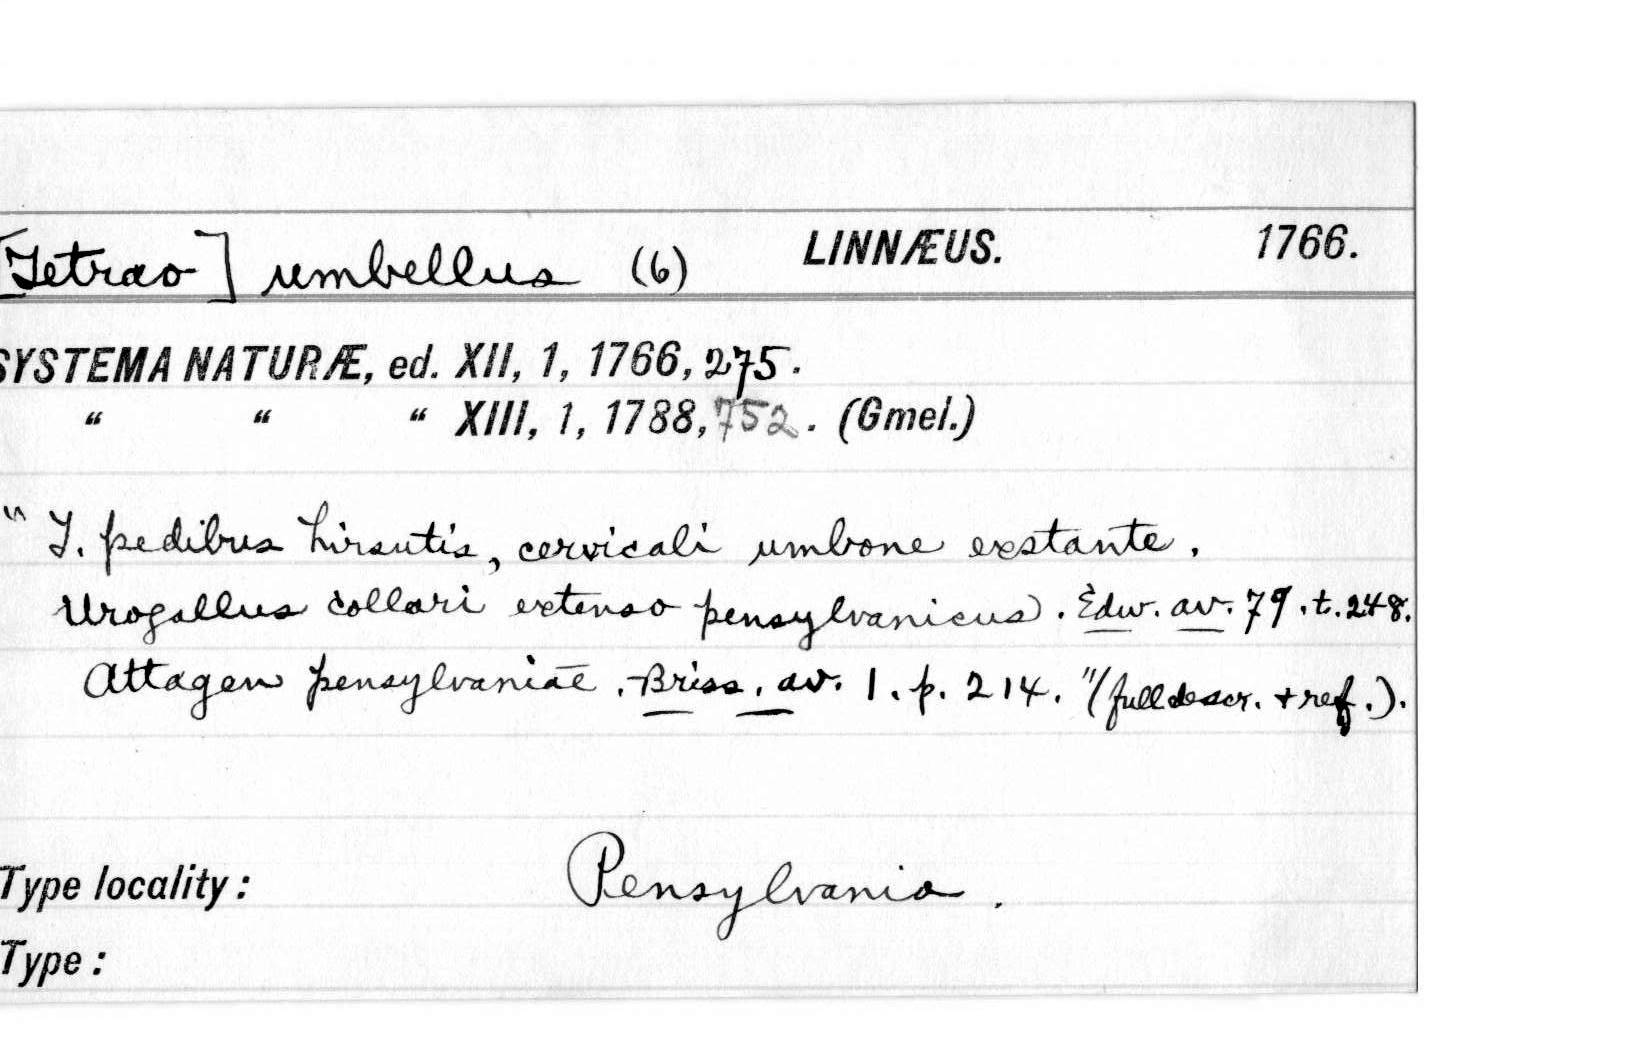 [Tetrao] umbellus (6) LINNÆUS. 1766.
SYSTEMA NATURÆ, ed. XII, 1, 1766, 275.
“ “ “ XIII, 1, 1788, 752. (Gmel.)
" T. pedibus hirsutis, cervicali umbone exstante.
Urogallus collari extenso pensylvanicus. Edw. av. 79. t. 248.
Attagen pensylvaniae. Briss. av. 1. p. 214. "(full descr. + ref.).
Type locality: Pensylvania.
Type: